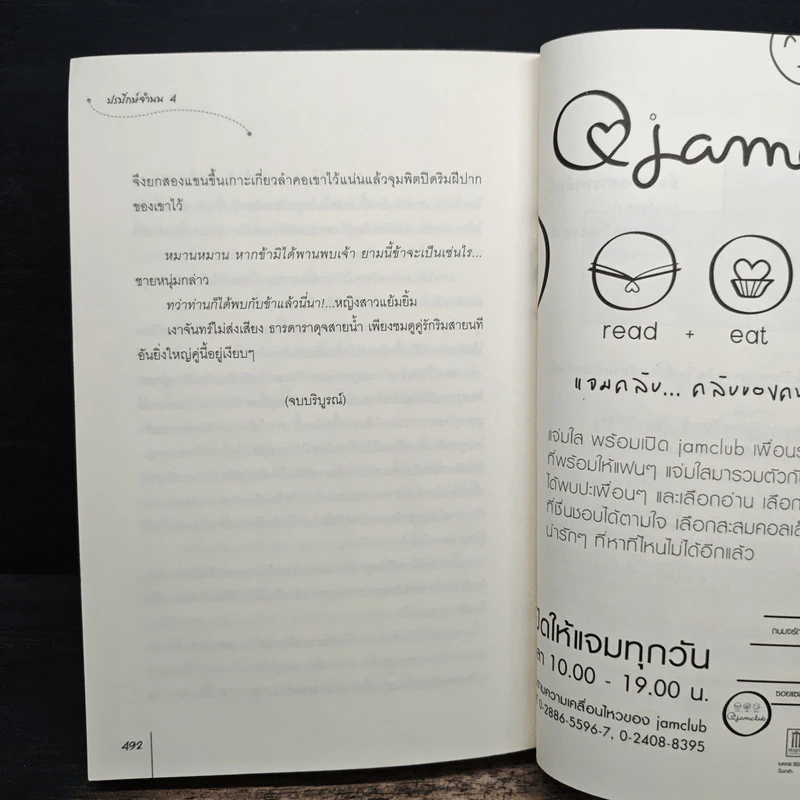 ปรปักษ์จำนน 4
จึงยกสองแขนขึ้นเกาะเกี่ยวลำคอเขาไว้แน่นแล้วจุมพิตปิดริมฝีปาก
ของเขาไว้
หมานหมาน หากข้ามิได้พานพบเจ้า ยามนี้ข้าจะเป็นเช่นไร...
ชายหนุ่มกล่าว
ทว่าท่านก็ได้พบกับข้าแล้วนี่นา!...หญิงสาวแย้มยิ้ม
เงาจันทร์ไม่ส่งเสียง ธารดาราดุจสายน้ำ เพียงชมดูคู่รักริมสายนที
อันยิ่งใหญ่คู่นี้อยู่เงียบๆ
(จบบริบูรณ์)
492
jam
read + eat
แจมคลับ... คลับของคน
แจ่มใส พร้อมเปิด jamclub เพื่อน
ที่พร้อมให้แฟนๆ แจ่มใสมารวมตัวกั
ได้พบปะเพื่อนๆ และเลือกอ่าน เลือก
ที่ชื่นชอบได้ตามใจ เลือกสะสมคอลเล
น่ารักๆ ที่หาที่ไหนไม่ได้อีกแล้ว
ปิดให้แจมทุกวัน
ลา 10.00 - 19.00 น.
ตามความเคลื่อนไหวของ jamclub
0-2886-5596-7, 0-2408-8395
jamclub